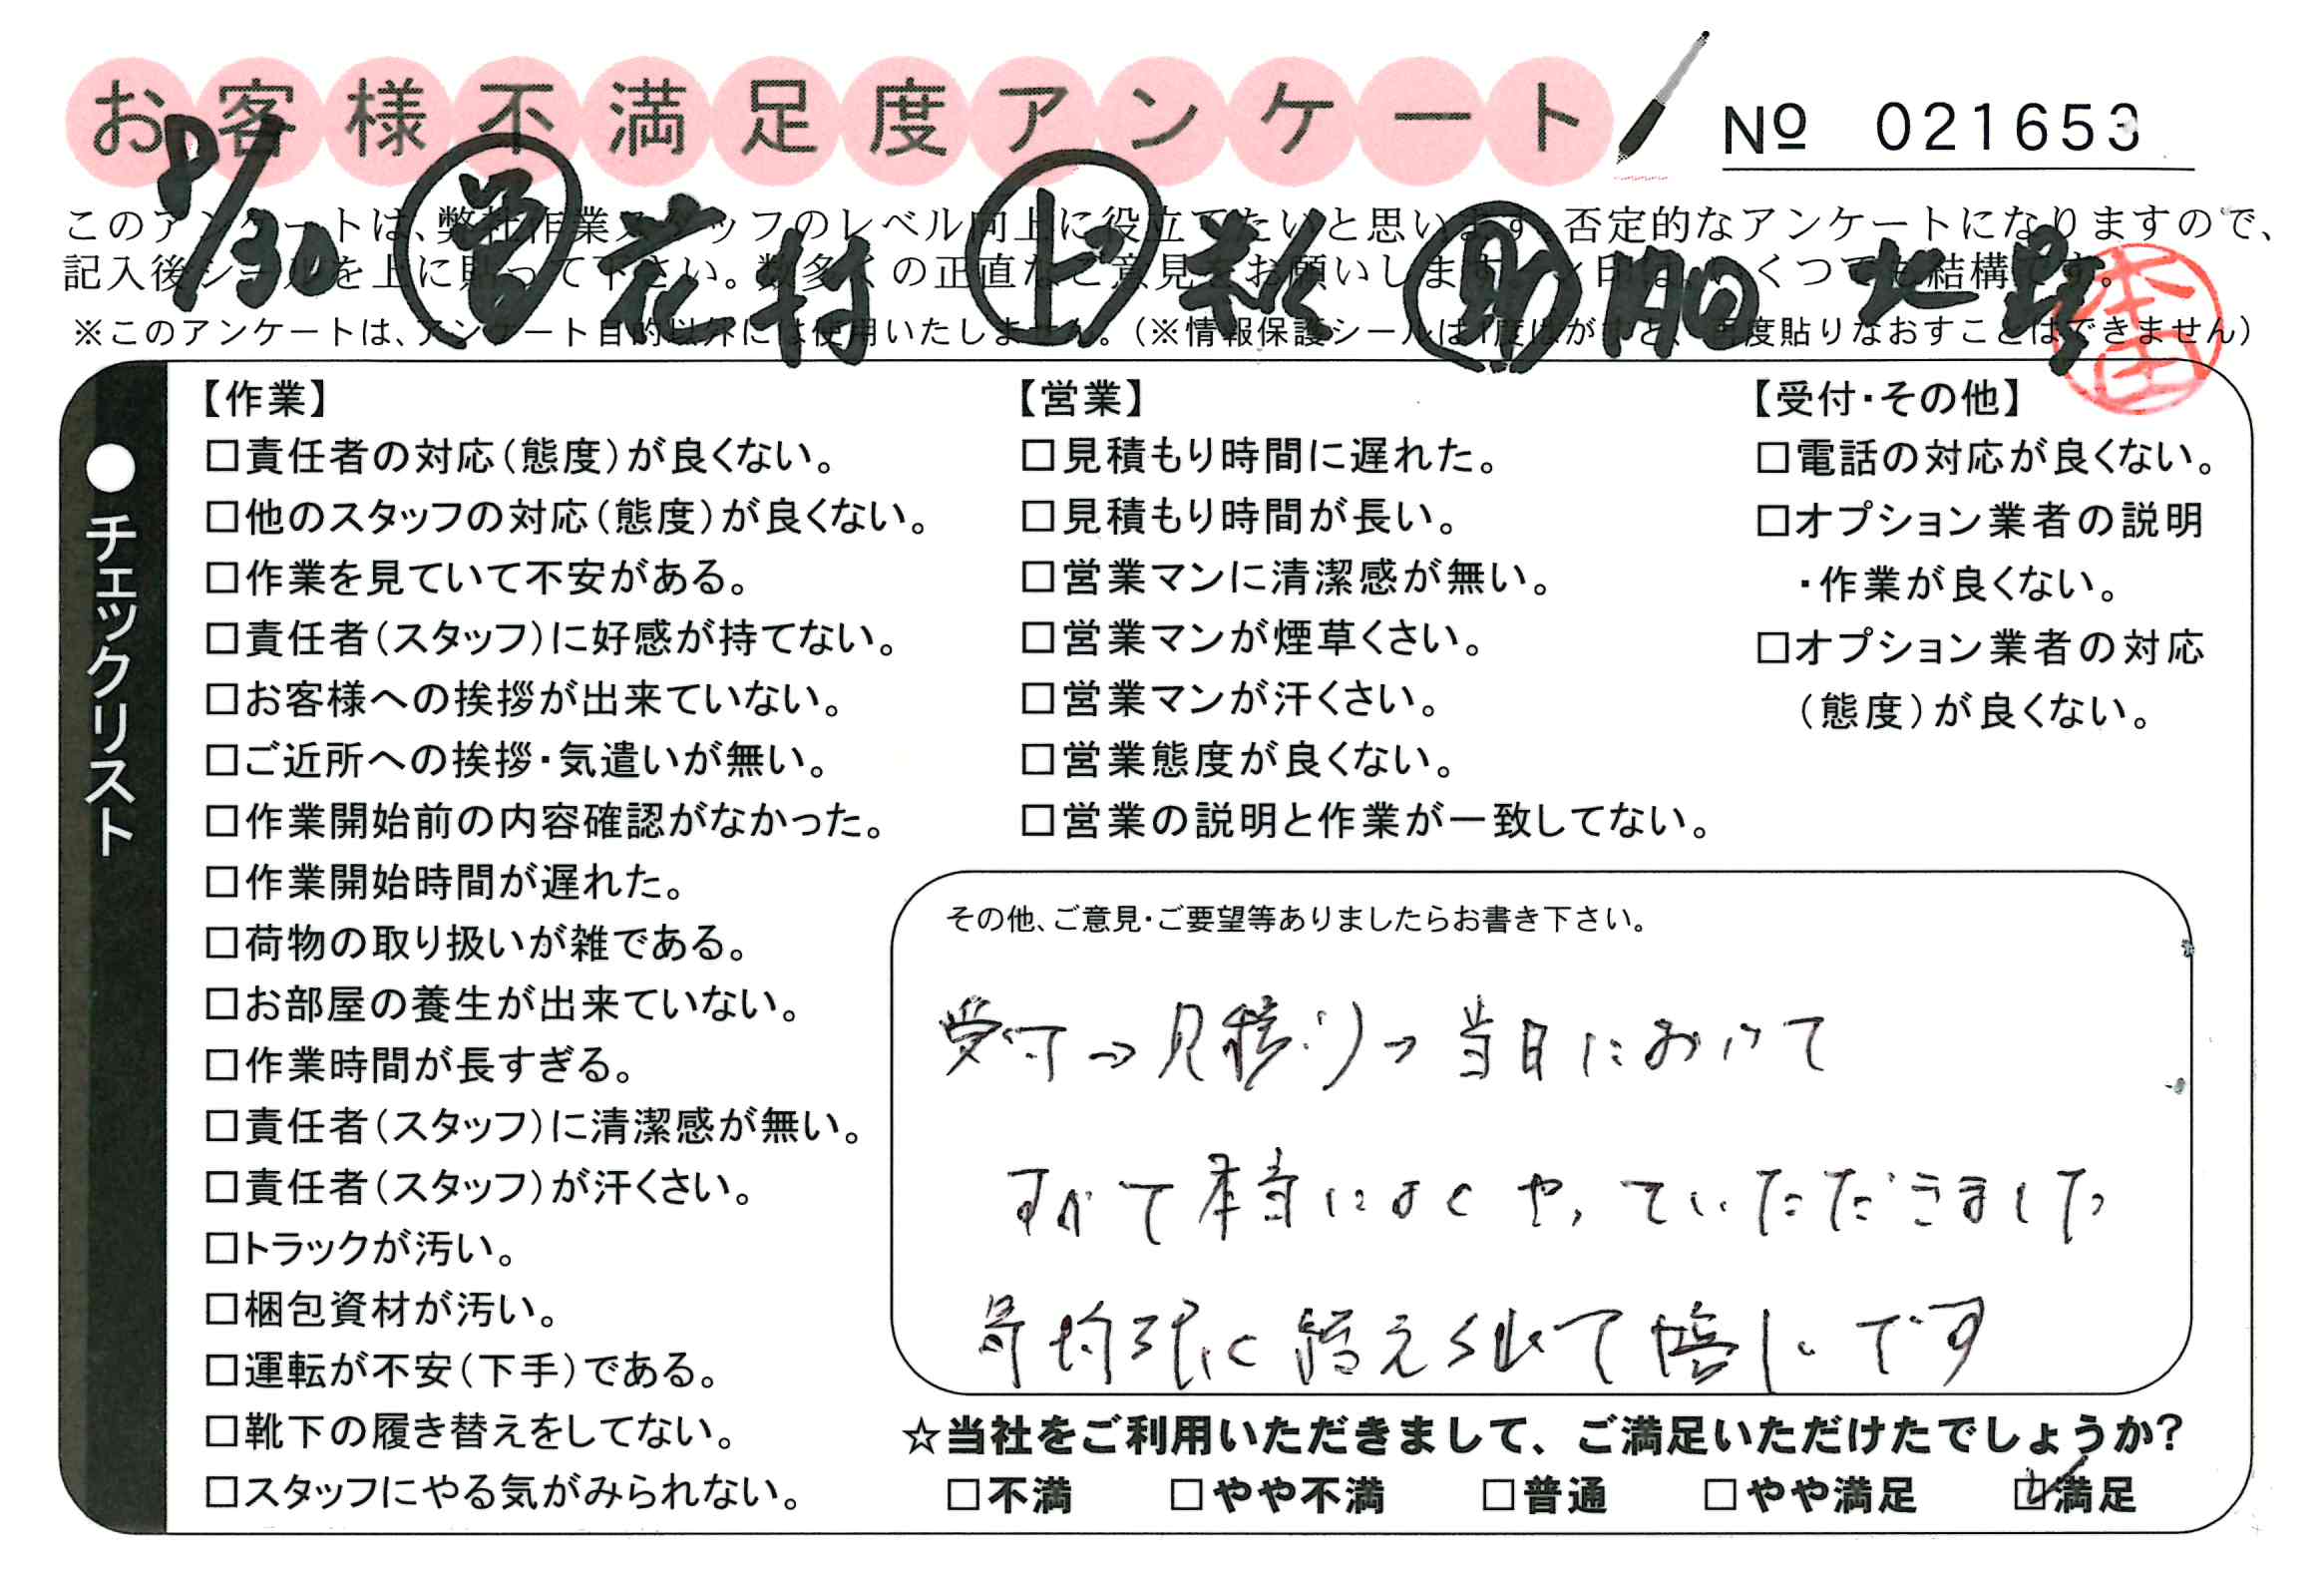 お客様不満足度アンケート
№ 021653
8/30 花村
このアンケートは、弊社作業スタッフのレベル向上に役立てたいと思います。否定的なアンケートになりますので、
記入後シールを上に貼って下さい。数多くの正直なご意見をお願いします。レ印はいくつでも結構です。
※このアンケートは、アンケート目的以外には使用いたしません。（※情報保護シールは1度はがすと、再度貼りなおすことはできません）
本田
●チェックリスト
【作業】
□責任者の対応（態度）が良くない。
□他のスタッフの対応（態度）が良くない。
□作業を見ていて不安がある。
□責任者（スタッフ）に好感が持てない。
□お客様への挨拶が出来ていない。
□ご近所への挨拶・気遣いが無い。
□作業開始前の内容確認がなかった。
□作業開始時間が遅れた。
□荷物の取り扱いが雑である。
□お部屋の養生が出来ていない。
□作業時間が長すぎる。
□責任者（スタッフ）に清潔感が無い。
□責任者（スタッフ）が汗くさい。
□トラックが汚い。
□梱包資材が汚い。
□運転が不安（下手）である。
□靴下の履き替えをしてない。
□スタッフにやる気がみられない。
【営業】
□見積もり時間に遅れた。
□見積もり時間が長い。
□営業マンに清潔感が無い。
□営業マンが煙草くさい。
□営業マンが汗くさい。
□営業態度が良くない。
□営業の説明と作業が一致してない。
【受付・その他】
□電話の対応が良くない。
□オプション業者の説明
・作業が良くない。
□オプション業者の対応
（態度）が良くない。
その他、ご意見・ご要望等ありましたらお書き下さい。
受付→見積り→当日において
すべて本当によくやっていただきました
☆当社をご利用いただきまして、ご満足いただけたでしょうか?
□不満 □やや不満 □普通 □やや満足 ☑満足